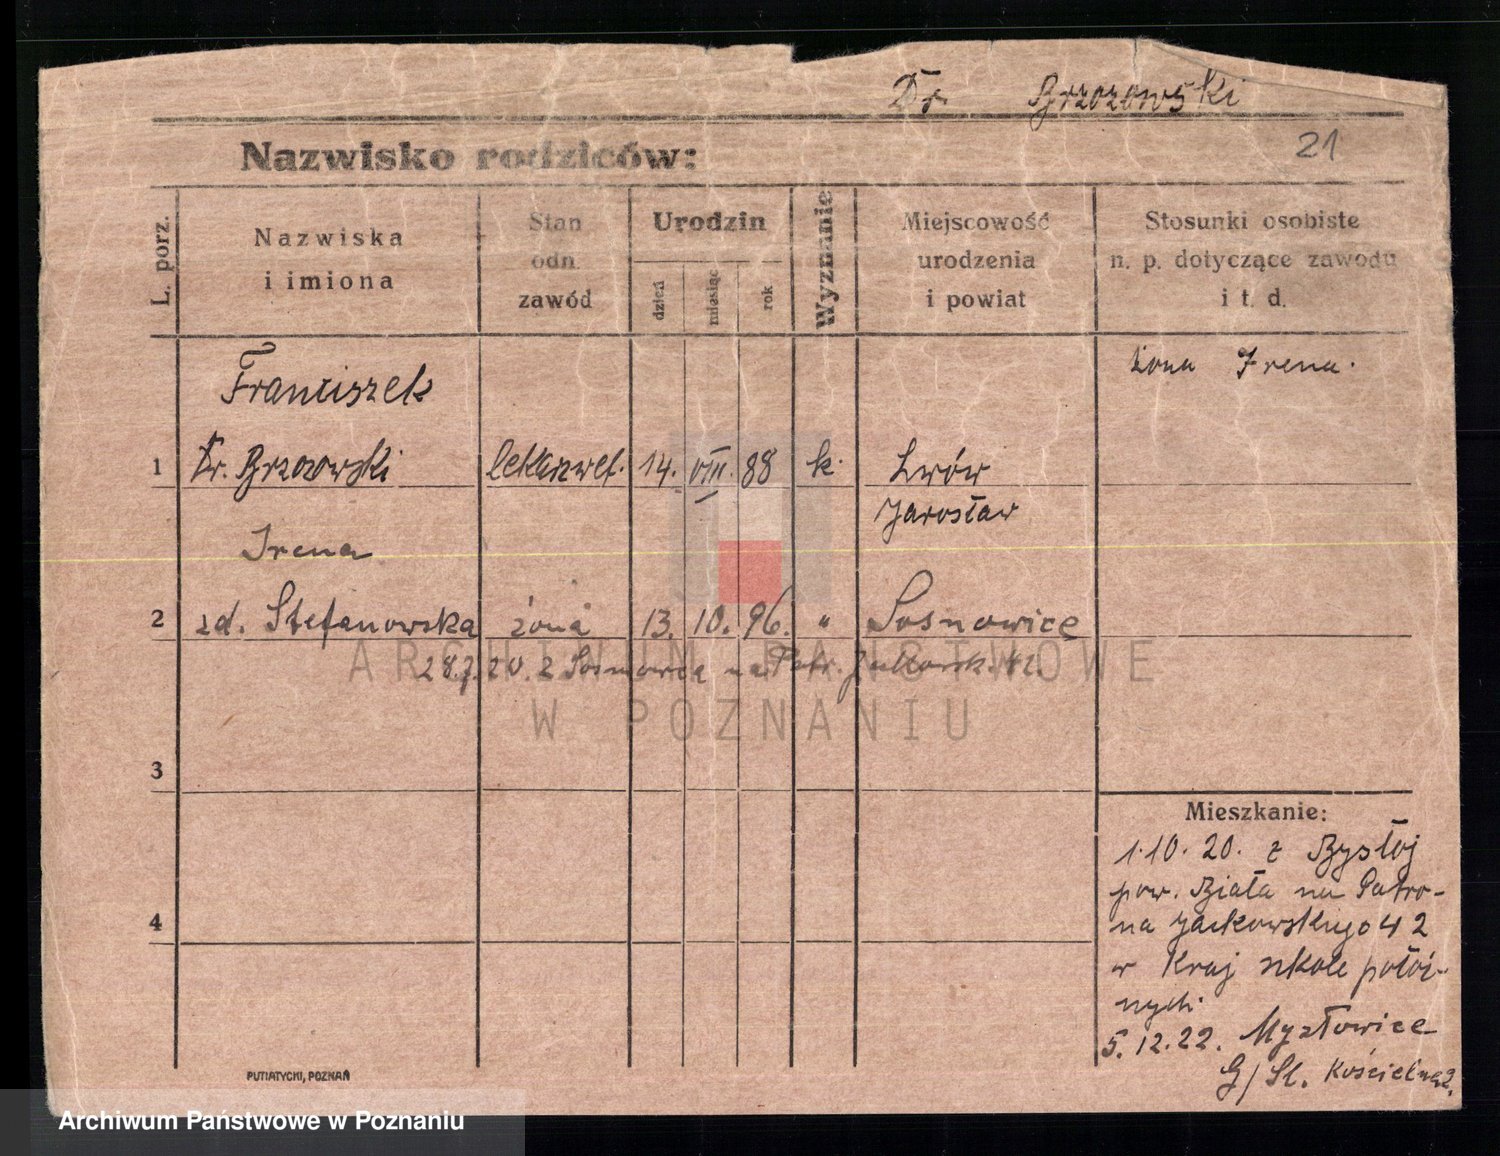 Dr. Brzozowski
21
Nazwisko rodziców:
L. porz.
Nazwiska
i imiona
Stan
odn.
zawód
Urodzin
dzień
miesiąc
rok
Wyznanie
Miejscowość
urodzenia
i powiat
Stosunki osobiste
n. p. dotyczące zawodu
i t. d.
Franciszek
żona Irena.
1 Dr. Brzozowski 14. VIII. 88 k. Lwów
Jarosław
Irena
2 zd. Stefanowska żona 13. 10. 96. " Sosnowice
28.7.20. z Sosnowca na Patr. Jackowsk. 42.
3
Mieszkanie:
1.10.20. z
pow. Biała na Patro-
na Jackowskiego 42
w Kraj szkole położ-
nych.
5.12.22. Mysłowice
G/Sl. Kościelna 2.
4
PUTIATYCKI, POZNAŃ
ARCHIWUM PAŃSTWOWE
W POZNANIU
Archiwum Państwowe w Poznaniu